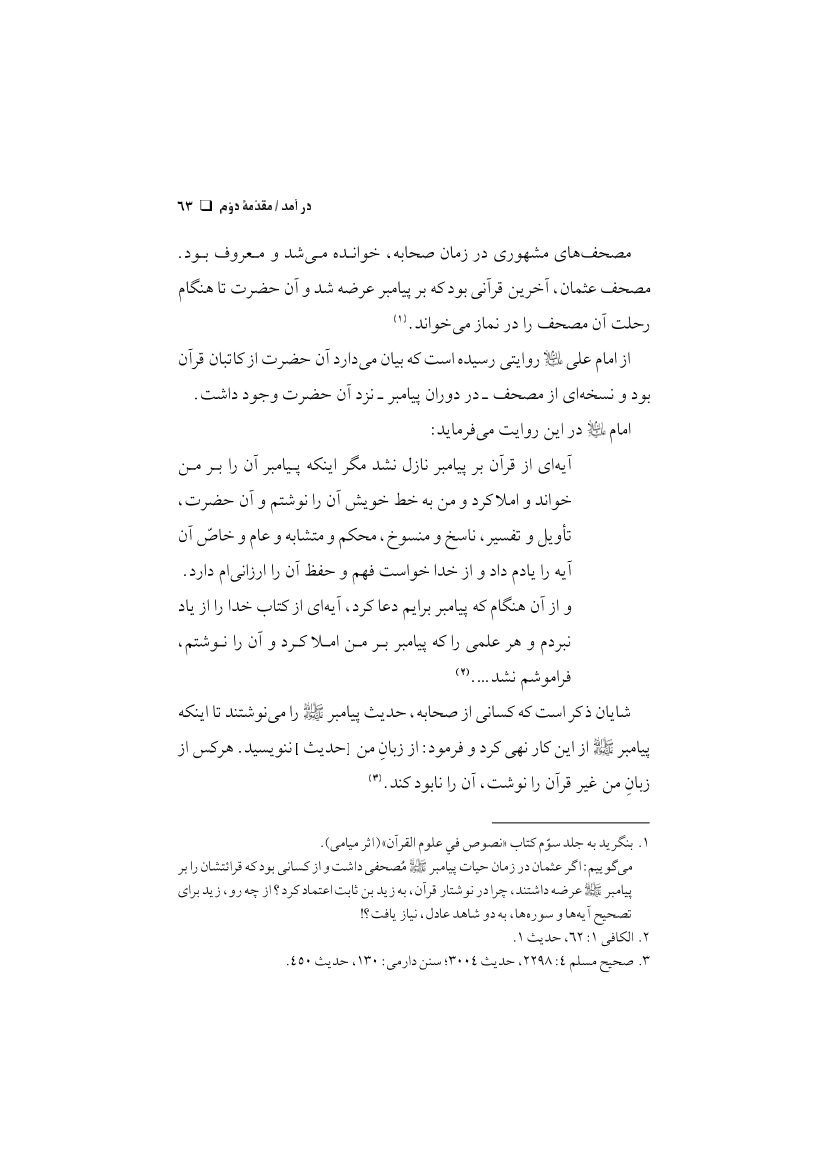 در آمد / مقدّمهٔ دوّم ❏ ٦٣
مصحف‌های مشهوری در زمان صحابه، خوانده می‌شد و معروف بود.
مصحف عثمان، آخرین قرآنی بود که بر پیامبر عرضه شد و آن حضرت تا هنگام
رحلت آن مصحف را در نماز می‌خواند.(۱)
از امام علی علیه‌السلام روایتی رسیده است که بیان می‌دارد آن حضرت از کاتبان قرآن
بود و نسخه‌ای از مصحف ـ در دوران پیامبر ـ نزد آن حضرت وجود داشت.
امام علیه‌السلام در این روایت می‌فرماید:
آیه‌ای از قرآن بر پیامبر نازل نشد مگر اینکه پیامبر آن را بر من
خواند و املا کرد و من به خط خویش آن را نوشتم و آن حضرت،
تأویل و تفسیر، ناسخ و منسوخ، محکم و متشابه و عام و خاصّ آن
آیه را یادم داد و از خدا خواست فهم و حفظ آن را ارزانی‌ام دارد.
و از آن هنگام که پیامبر برایم دعا کرد، آیه‌ای از کتاب خدا را از یاد
نبردم و هر علمی را که پیامبر بر من املا کرد و آن را نوشتم،
فراموشم نشد....(۲)
شایان ذکر است که کسانی از صحابه، حدیث پیامبر ﷺ را می‌نوشتند تا اینکه
پیامبر ﷺ از این کار نهی کرد و فرمود: از زبانِ من [حدیث] ننویسید. هرکس از
زبانِ من غیر قرآن را نوشت، آن را نابود کند.(۳)
۱. بنگرید به جلد سوّم کتاب «نصوص في علوم القرآن»(اثر میامی).
می‌گوییم: اگر عثمان در زمان حیات پیامبر ﷺ مُصحفی داشت و از کسانی بود که قرائتشان را بر
پیامبر ﷺ عرضه داشتند، چرا در نوشتار قرآن، به زید بن ثابت اعتماد کرد؟ از چه رو، زید برای
تصحیح آیه‌ها و سوره‌ها، به دو شاهد عادل، نیاز یافت؟!
۲. الکافی ۱: ٦٢، حدیث ۱.
۳. صحیح مسلم ٤: ۲۲۹۸، حدیث ۳۰۰٤؛ سنن دارمی: ۱۳۰، حدیث ٤٥۰.